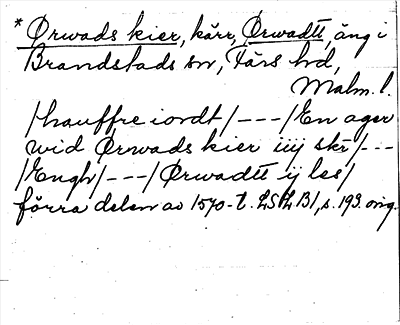 * Ørwads kier, kärr, Ørwadtt, äng i
Brandstads sn, Färs hd,
Malm. l.
/hauffre iordt/ --- /En ager
wid Ørwads kier iiij skr/ ---
/Engh/ --- /Ørwadtt ij les/
förra delen av 1570-t. LSLB1, s. 193. orig.